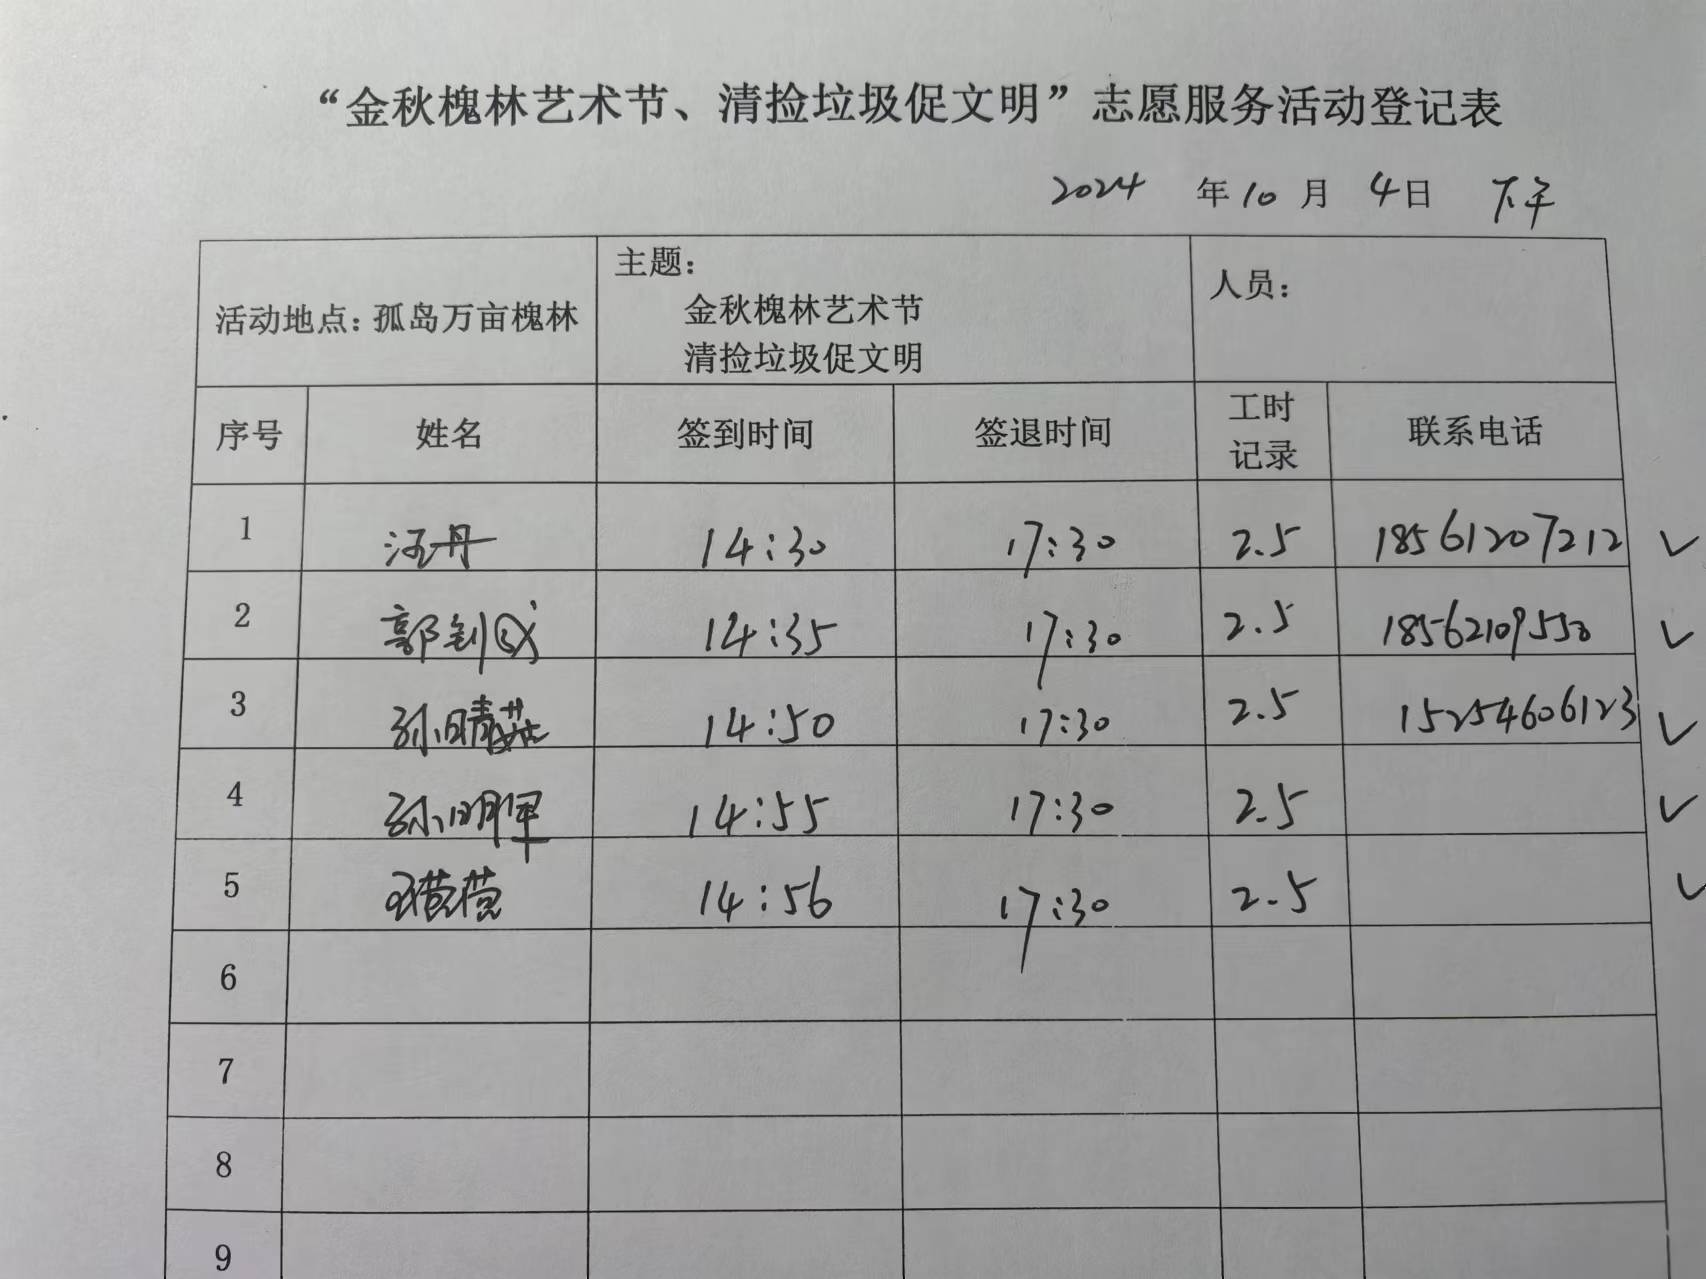 “金秋槐林艺术节、清捡垃圾促文明”志愿服务活动登记表
2024 年 10 月 4 日 下午
活动地点：孤岛万亩槐林 主题： 人员：
金秋槐林艺术节
清捡垃圾促文明
序号 姓名 签到时间 签退时间 工时记录 联系电话
1 汪丹 14:30 17:30 2.5 18561207212 ✓
2 14:35 17:30 2.5 18562109550 ✓
3 孙晴茹 14:50 17:30 2.5 15254606123 ✓
4 孙明军 14:55 17:30 2.5 ✓
5 14:56 17:30 2.5 ✓
6
7
8
9